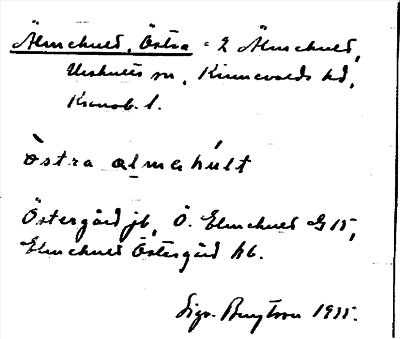 Älmehult, Östra = 2 Älmehult,
Urshults sn, Kinnevalds hd,
Kronob. l.
östra almahult
Östergård jb, Ö. Elmehult G 15,
Elmehult Östergård hb.
Sigv. 1935.